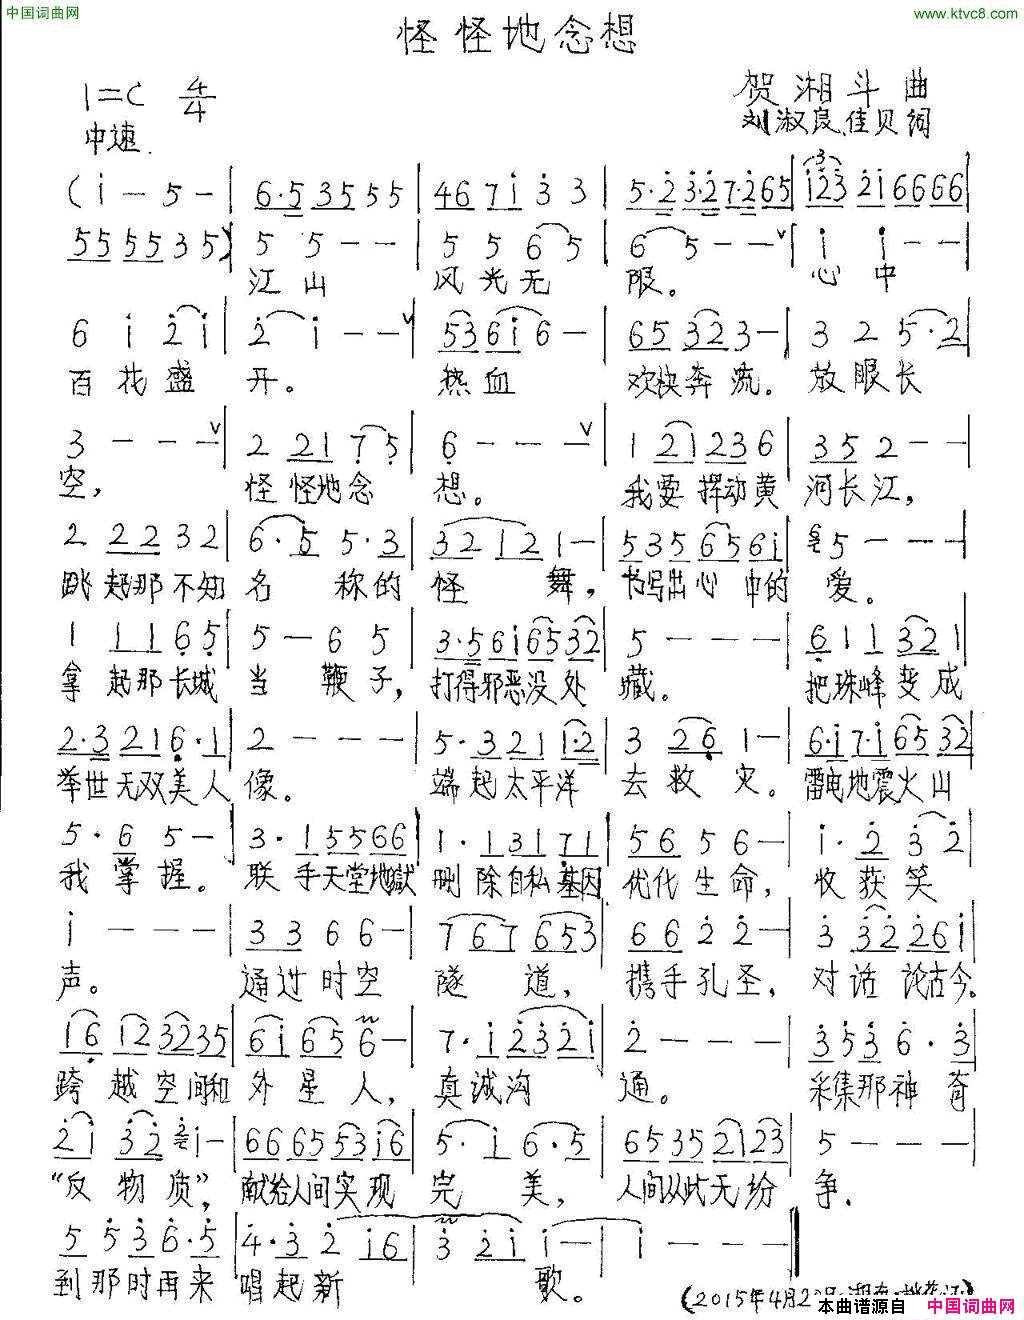 中国词曲网
www.ktvc8.com
怪怪地念想
1=C 4/4
贺湘斗 曲
中速
刘淑良、佳贝词
(i - 5 - | 6·5 35 5 5 | 46 7i 3 3 | 5·2 3·2 7·2 65 | i23 2i 66 66 |
55 55 3 5) | 5 5 - - | 5 5 6 5 | 6 5 - - | i i - - |
江山 风光无 限。 心中
6 i 2 i | 2 i - - | 53 6i 6 - | 65 32 3 - | 3 2 5·2 |
百花盛 开。 热血 欢快奔流。 放眼长
3 - - - | 2 21 7 5 | 6 - - - | 1 21 23 6 | 35 2 - - |
空, 怪怪地念 想。 我要挥动黄 河长江,
2 22 3 2 | 6·5 5·3 | 32 12 1 - | 53 5 65 6i | 5 - - - |
跳起那不知 名称的 怪舞, 书写出心中的 爱。
1 11 6 5 | 5 - 6 5 | 3·5 6i 65 32 | 5 - - - | 6 1 1 32 1 |
拿起那长城 当鞭子, 打得邪恶没处 藏。 把珠峰变成
2·3 21 6·1 | 2 - - - | 5·3 21 1·2 | 3 26 1 - | 6·i 7·i 65 32 |
举世无双美人 像。 端起太平洋 去救灾。 雷电地震火山
5·6 5 - | 3·1 55 66 | 1·1 31 71 | 56 5 6 - | i·2 3 2 |
我掌握。 联手天堂地狱 删除自私基因 优化生命, 收获笑
i - - - | 33 6 6 - | 7 67 653 | 66 2 2 - | 3 32 26i |
声。 通过时空 隧道, 携手孔圣, 对话论古今。
16 12 32 35 | 6i 65 6 - | 7·i 23 2i | 2 - - - | 35 3 6·3 |
跨越空间和 外星人, 真诚沟 通。 采集那神奇
2i 32 i - | 66 65 53 i6 | 5·i 6·5 | 65 35 2i 23 | 5 - - - |
“反物质”, 献给人间实现 完美, 人间从此无纷 争.
5 5 3 6·5 | 4·3 2 i6 | 3 2i i - | i - - - ‖
到那时再来 唱起新 歌。
本曲谱源自 中国词曲网